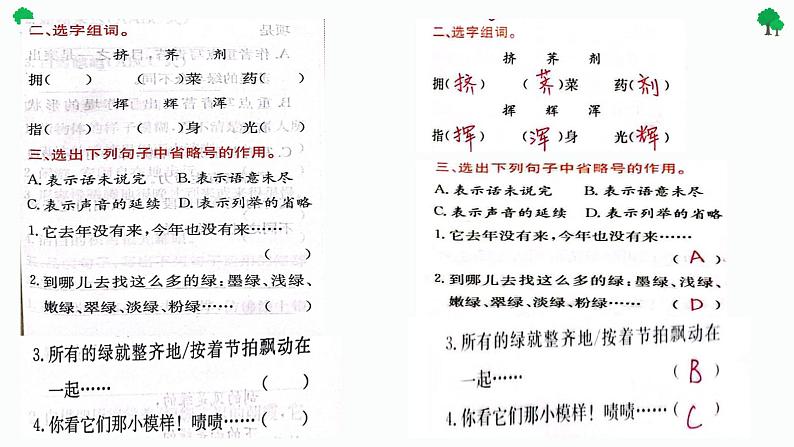 二、选字组词。
挤 荠 剂
拥( ) ( )菜 药( )
挥 辉 浑
指( ) ( )身 光( )
三、选出下列句子中省略号的作用。
A.表示话未说完 B.表示语意未尽
C.表示声音的延续 D.表示列举的省略
1.它去年没有来,今年也没有来……
( )
2.到哪儿去找这么多的绿:墨绿、浅绿、
嫩绿、翠绿、淡绿、粉绿…… ( )
3.所有的绿就整齐地/按着节拍飘动在
一起…… ( )
4.你看它们那小模样!啧啧……( )
二、选字组词。
挤 荠 剂
拥(挤) (荠)菜 药(剂)
挥 辉 浑
指(挥) (浑)身 光(辉)
三、选出下列句子中省略号的作用。
A.表示话未说完 B.表示语意未尽
C.表示声音的延续 D.表示列举的省略
1.它去年没有来,今年也没有来……
( A )
2.到哪儿去找这么多的绿:墨绿、浅绿、
嫩绿、翠绿、淡绿、粉绿…… ( D )
3.所有的绿就整齐地/按着节拍飘动在
一起…… ( B )
4.你看它们那小模样!啧啧……( C )